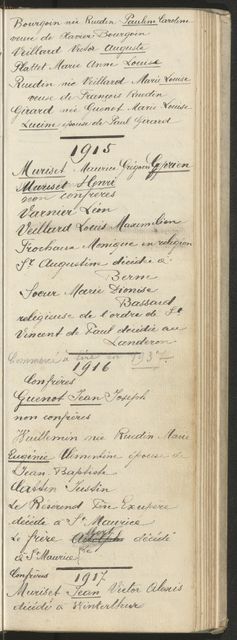 Bourgoin née Ruedin Pauline Caroline
veuve de Xavier Bourgoin
Veillard Victor Auguste
Plattet Marie Anne Louise
Ruedin née Veillard Marie Louise
veuve de François Ruedin
Girard née Guenot Marie Louise
Lucine épouse de Paul Girard
1915
Muriset Maurice Grégoire Cyprien
Muriset Henri
non confrères
Varnier Léon
Veillard Louis Maximilien
Frochaux Monique en religion
St Augustine décédée à
Berne
Soeur Marie Dionise
Bassaud
religieuse de l'ordre de St
Vincent de Paul décédée au
Landeron
Commencé à lire en 1937
1916
Confrères
Guenot Jean Joseph
non confrères
Vuillemin née Ruedin Marie
Eugénie Clémentine épouse de
Jean Baptiste
Justin
Le Révérend Père Exupère
décédé à St Maurice
Le frère Adolph décédé
à St Maurice
Confrères 1917
Muriset Jean Victor Aloris
décédé à Winterthur